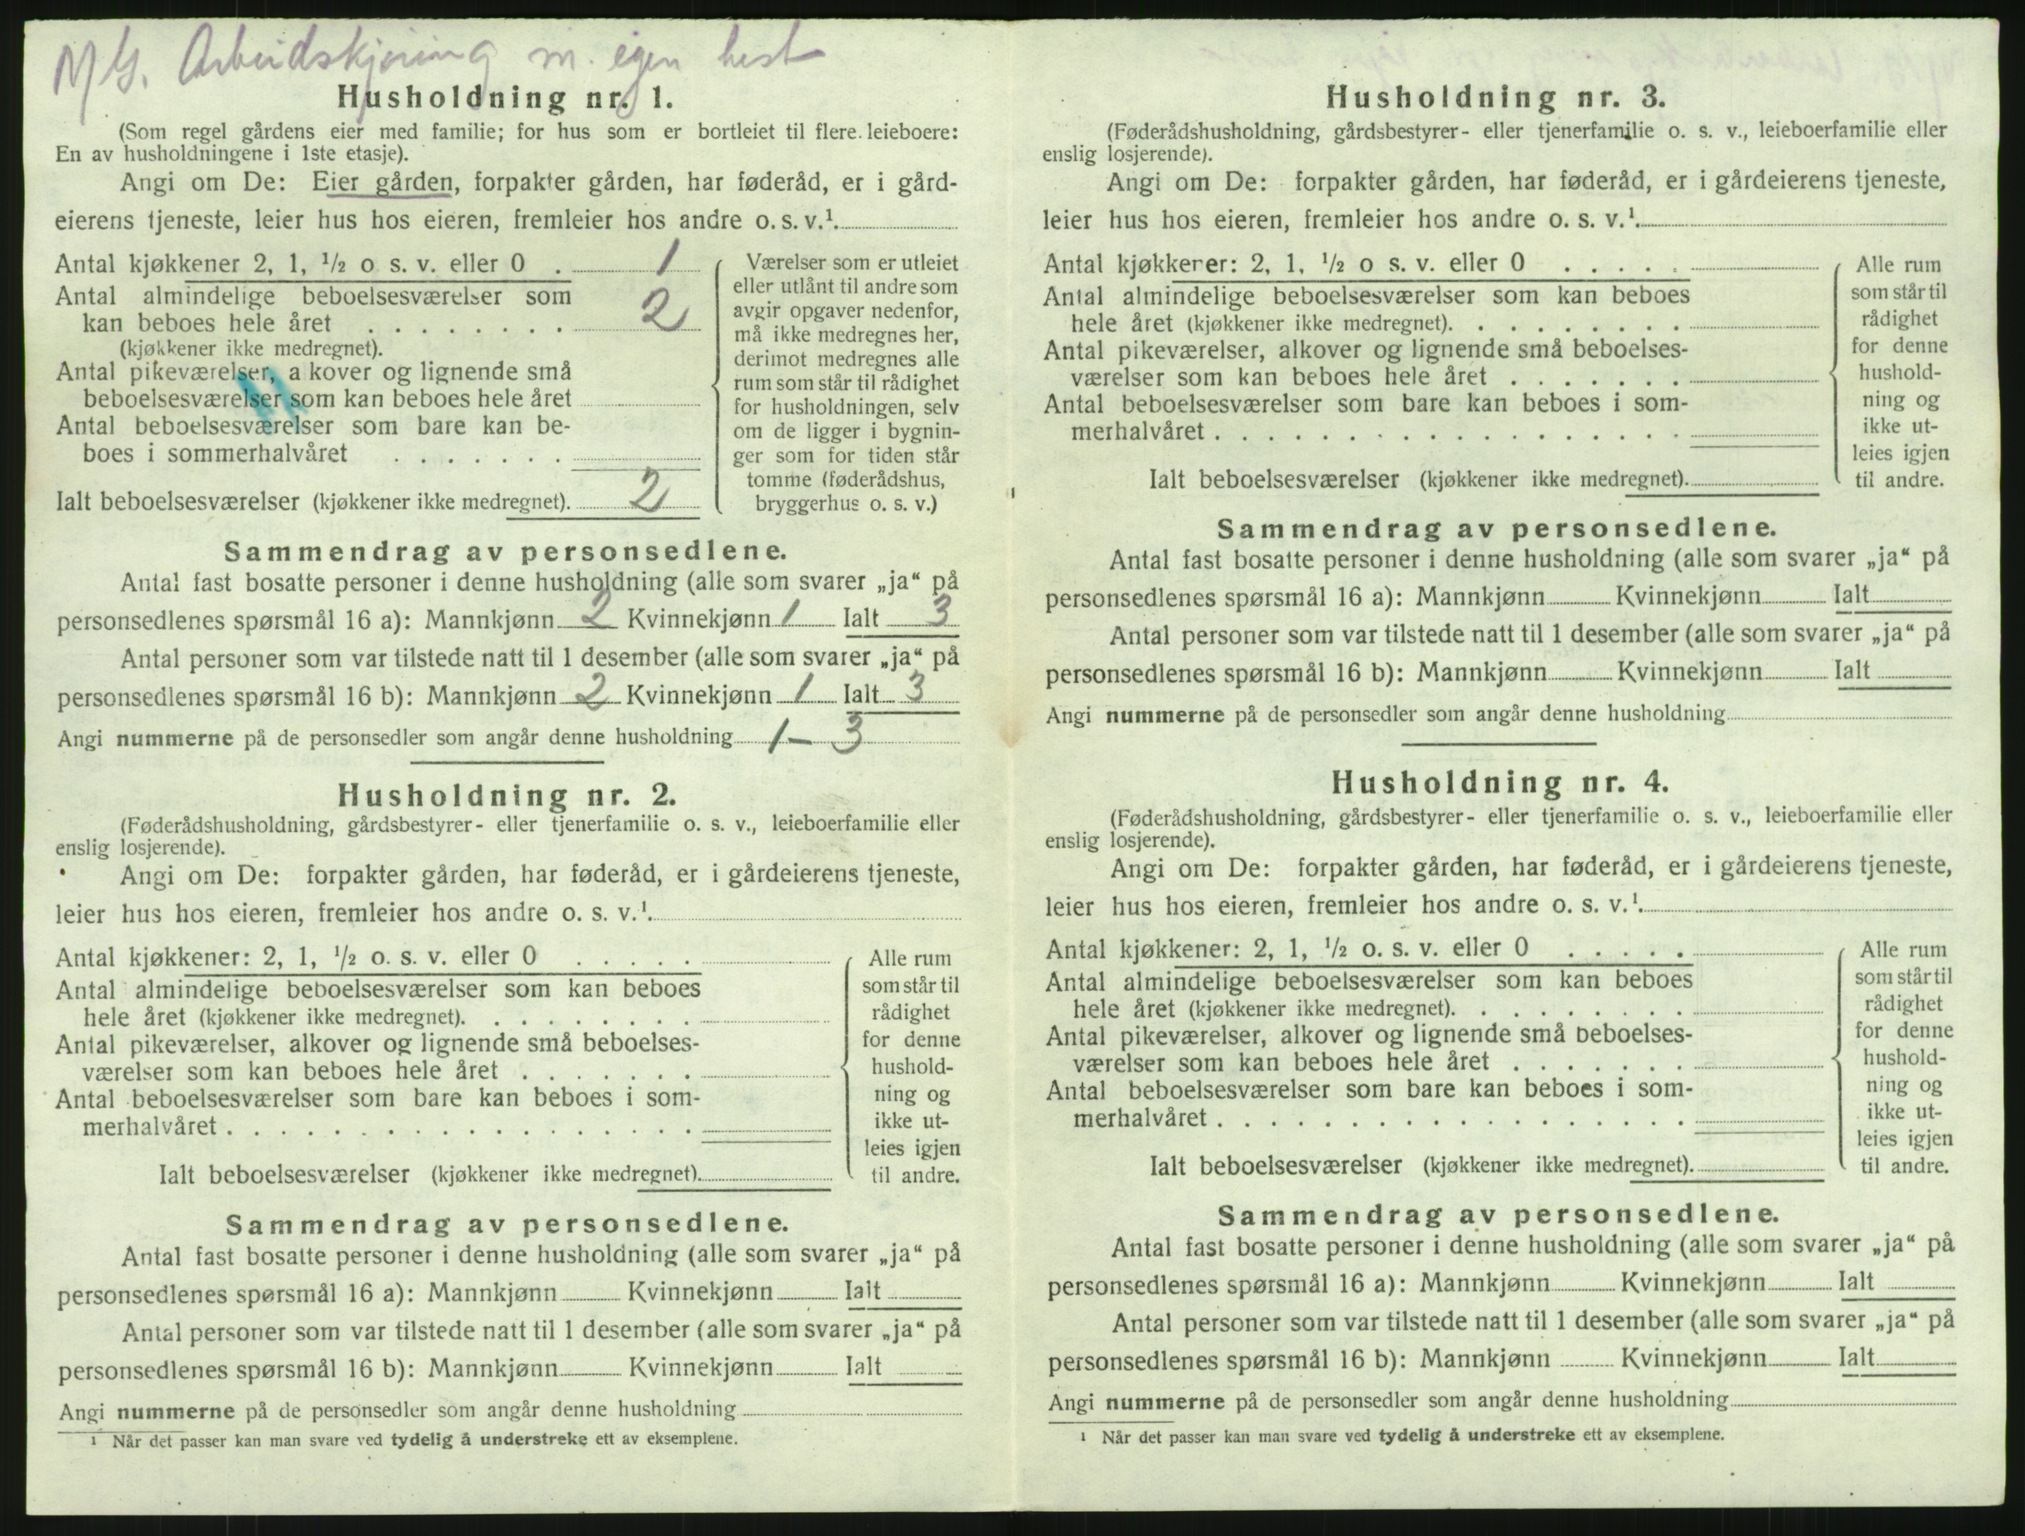 M/G. Arbeidskjøring m. egen hest
Husholdning nr. 1.
(Som regel gårdens eier med familie; for hus som er bortleiet til flere leieboere:
En av husholdningene i 1ste etasje).
Angi om De: Eier gården, forpakter gården, har føderåd, er i gård-
eierens tjeneste, leier hus hos eieren, fremleier hos andre o. s. v.¹
Antal kjøkkener 2, 1, ½ o s. v. eller 0 . 1
Antal almindelige beboelsesværelser som
kan beboes hele året . . . . . . . . 2
(kjøkkener ikke medregnet).
Antal pikeværelser, a kover og lignende små
beboelsesværelser som kan beboes hele året
Antal beboelsesværelser som bare kan be-
boes i sommerhalvåret . . . . . . .
Ialt beboelsesværelser (kjøkkener ikke medregnet). 2
Værelser som er utleiet
eller utlånt til andre som
avgir opgaver nedenfor,
må ikke medregnes her,
derimot medregnes alle
rum som står til rådighet
for husholdningen, selv
om de ligger i bygnin-
ger som for tiden står
tomme (føderådshus,
bryggerhus o. s. v.)
Sammendrag av personsedlene.
Antal fast bosatte personer i denne husholdning (alle som svarer „ja“ på
personsedlenes spørsmål 16 a): Mannkjønn 2 Kvinnekjønn 1 Ialt 3
Antal personer som var tilstede natt til 1 desember (alle som svarer „ja“ på
personsedlenes spørsmål 16 b): Mannkjønn 2 Kvinnekjønn 1 Ialt 3
Angi nummerne på de personsedler som angår denne husholdning 1 – 3
Husholdning nr. 2.
(Føderådshusholdning, gårdsbestyrer- eller tjenerfamilie o. s. v., leieboerfamilie eller
enslig losjerende).
Angi om De: forpakter gården, har føderåd, er i gårdeierens tjeneste,
leier hus hos eieren, fremleier hos andre o. s. v.¹
Antal kjøkkener: 2, 1, ½ o. s. v. eller 0 . . . . .
Antal almindelige beboelsesværelser som kan beboes
hele året (kjøkkener ikke medregnet). . . . . . . . .
Antal pikeværelser, alkover og lignende små beboelses-
værelser som kan beboes hele året . . . . . . .
Antal beboelsesværelser som bare kan beboes i som-
merhalvåret . . . . . . . . . . . . . . . . . .
Ialt beboelsesværelser (kjøkkener ikke medregnet).
Alle rum
som står til
rådighet
for denne
hushold-
ning og
ikke ut-
leies igjen
til andre.
Sammendrag av personsedlene.
Antal fast bosatte personer i denne husholdning (alle som svarer „ja“ på
personsedlenes spørsmål 16 a): Mannkjønn Kvinnekjønn Ialt
Antal personer som var tilstede natt til 1 desember (alle som svarer „ja“ på
personsedlenes spørsmål 16 b): Mannkjønn Kvinnekjønn Ialt
Angi nummerne på de personsedler som angår denne husholdning
¹ Når det passer kan man svare ved tydelig å understreke ett av eksemplene.
Husholdning nr. 3.
(Føderådshusholdning, gårdsbestyrer- eller tjenerfamilie o. s. v., leieboerfamilie eller
enslig losjerende).
Angi om De: forpakter gården, har føderåd, er i gårdeierens tjeneste,
leier hus hos eieren, fremleier hos andre o. s. v.¹
Antal kjøkkener: 2, 1, ½ o s. v. eller 0 . . . . .
Antal almindelige beboelsesværelser som kan beboes
hele året (kjøkkener ikke medregnet). . . . . . . . .
Antal pikeværelser, alkover og lignende små beboelses-
værelser som kan beboes hele året . . . . . . .
Antal beboelsesværelser som bare kan beboes i som-
merhalvåret . . . . . . . . . . . . . . . . . .
Ialt beboelsesværelser (kjøkkener ikke medregnet).
Alle rum
som står til
rådighet
for denne
hushold-
ning og
ikke ut-
leies igjen
til andre.
Sammendrag av personsedlene.
Antal fast bosatte personer i denne husholdning (alle som svarer „ja“ på
personsedlenes spørsmål 16 a): Mannkjønn Kvinnekjønn Ialt
Antal personer som var tilstede natt til 1 desember (alle som svarer „ja“ på
personsedlenes spørsmål 16 b): Mannkjønn Kvinnekjønn Ialt
Angi nummerne på de personsedler som angår denne husholdning
Husholdning nr. 4.
(Føderådshusholdning, gårdsbestyrer- eller tjenerfamilie o. s. v., leieboerfamilie eller
enslig losjerende).
Angi om De: forpakter gården, har føderåd, er i gårdeierens tjeneste,
leier hus hos eieren, fremleier hos andre o. s. v.¹
Antal kjøkkener: 2, 1, ½ o. s. v. eller 0 . . . . .
Antal almindelige beboelsesværelser som kan beboes
hele året (kjøkkener ikke medregnet). . . . . . . . .
Antal pikeværelser, alkover og lignende små beboelses-
værelser som kan beboes hele året . . . . . . .
Antal beboelsesværelser som bare kan beboes i som-
merhalvåret . . . . . . . . . . . . . . . . . .
Ialt beboelsesværelser (kjøkkener ikke medregnet).
Alle rum
som står til
rådighet
for denne
hushold-
ning og
ikke ut-
leies igjen
til andre.
Sammendrag av personsedlene.
Antal fast bosatte personer i denne husholdning (alle som svarer „ja“ på
personsedlenes spørsmål 16 a): Mannkjønn Kvinnekjønn Ialt
Antal personer som var tilstede natt til 1 desember (alle som svarer „ja“ på
personsedlenes spørsmål 16 b): Mannkjønn Kvinnekjønn Ialt
Angi nummerne på de personsedler som angår denne husholdning
¹ Når det passer kan man svare ved tydelig å understreke ett av eksemplene.